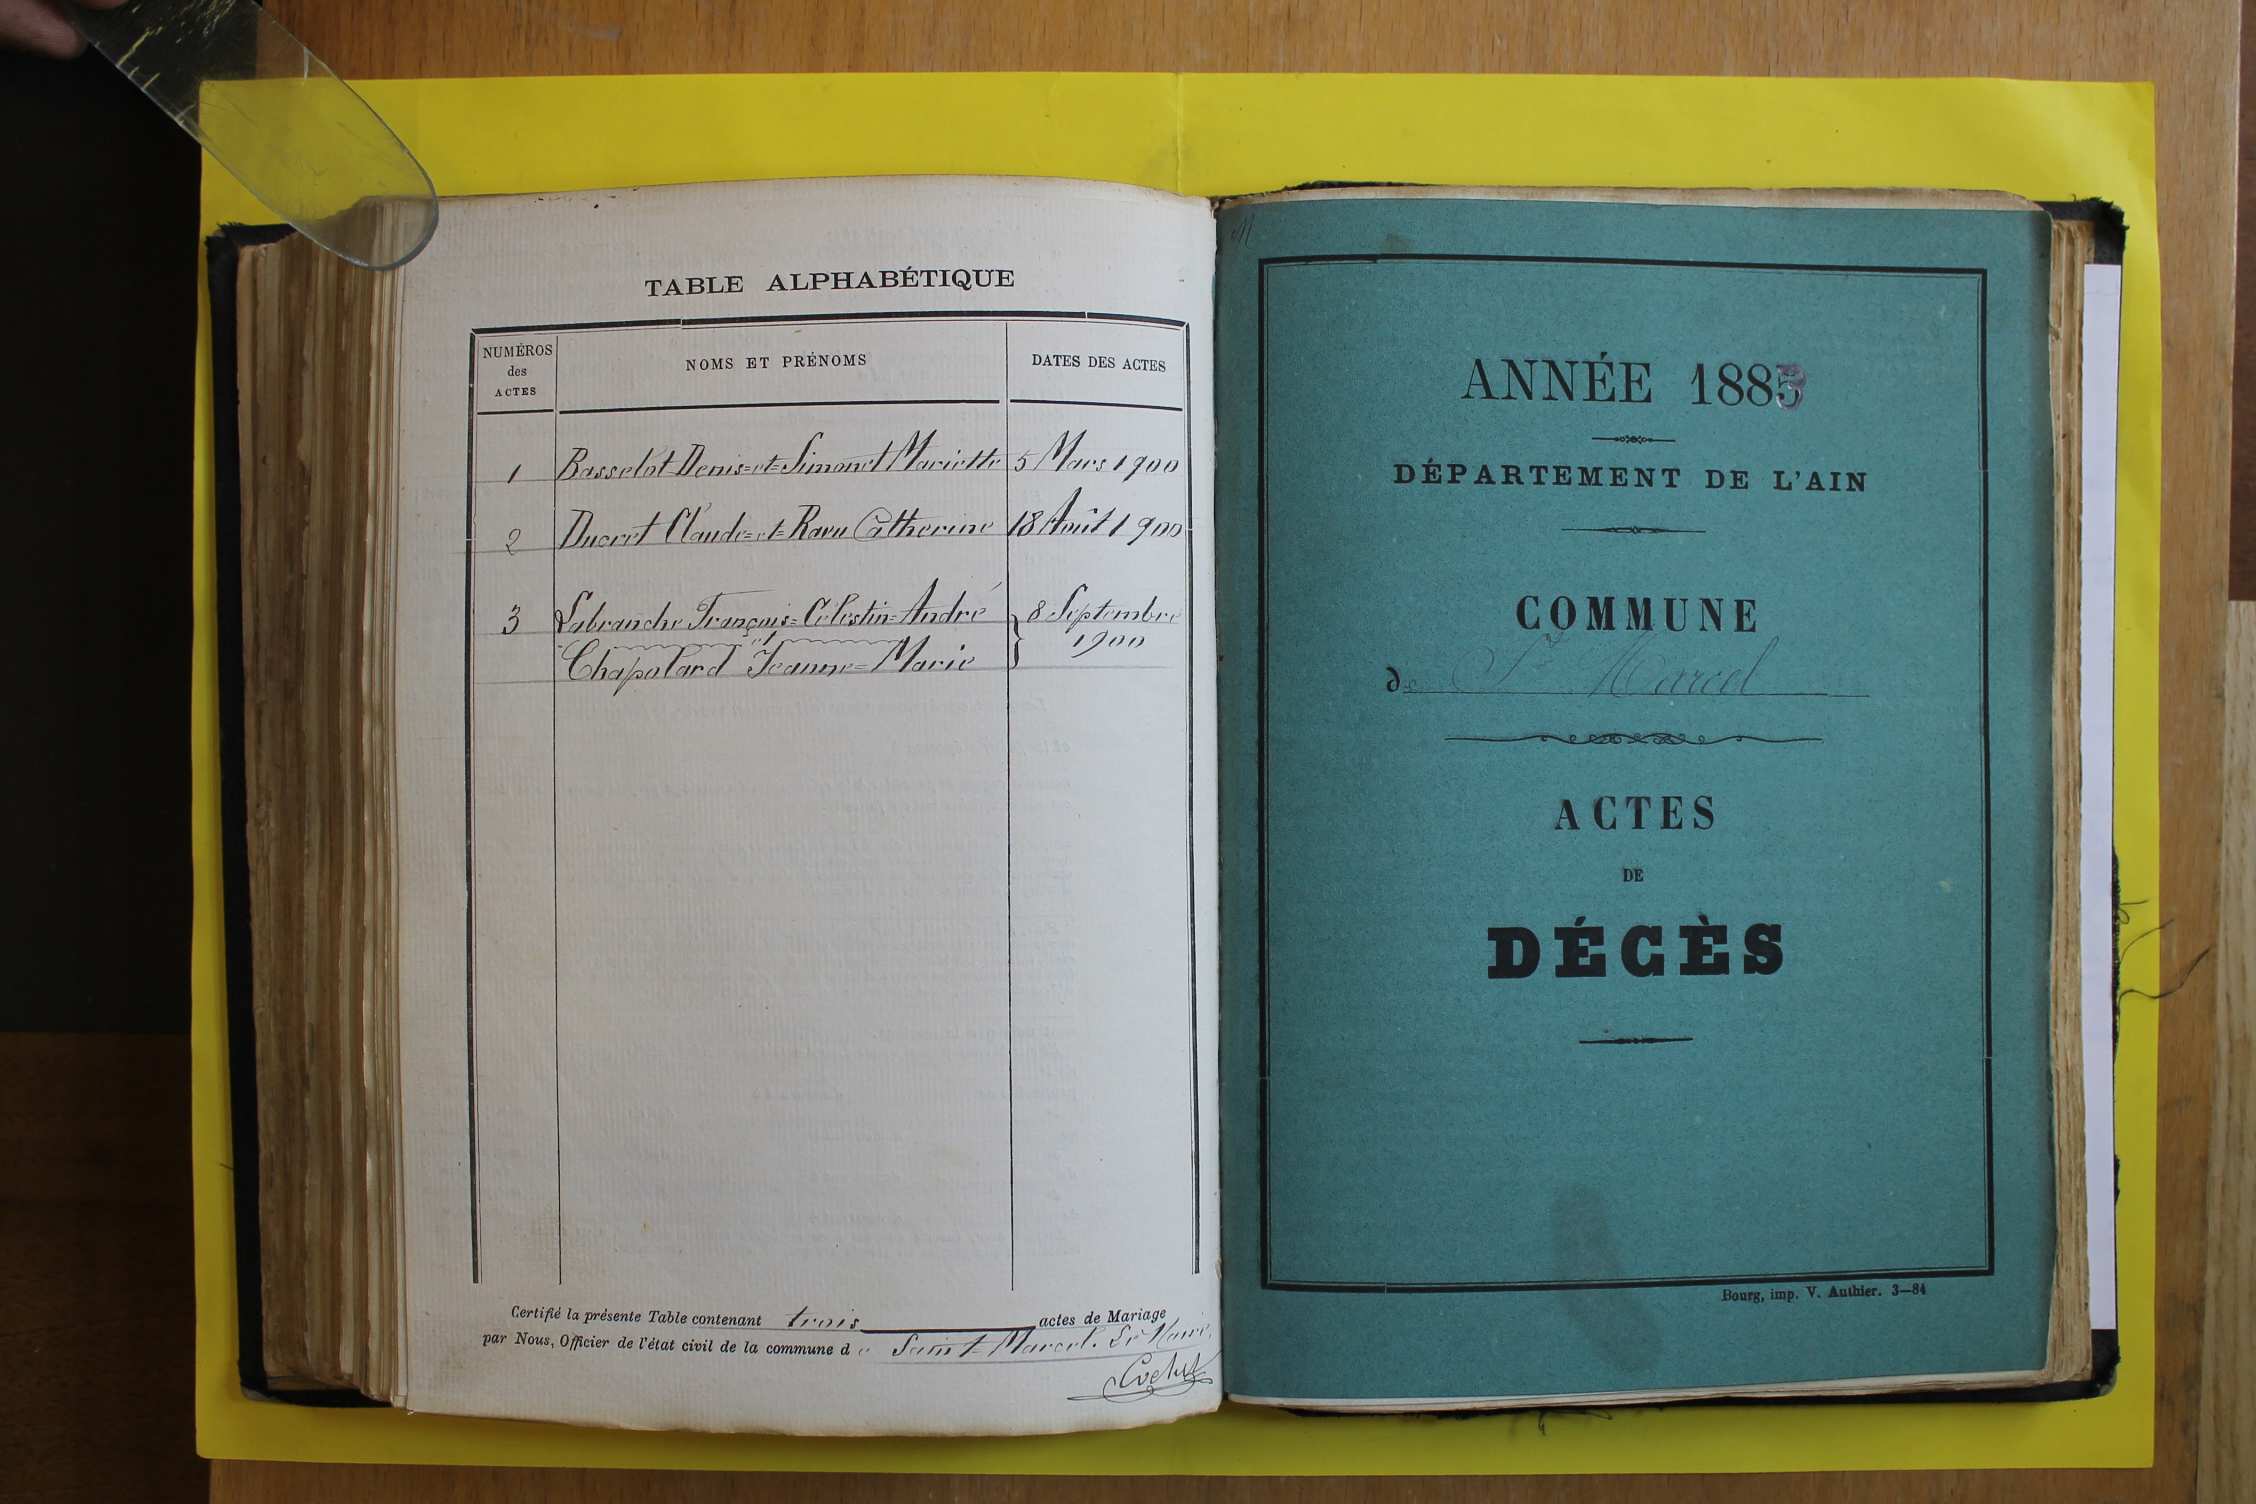 TABLE ALPHABÉTIQUE
NUMÉROS
des
ACTES
NOMS ET PRÉNOMS
DATES DES ACTES
1 Basselot Denis=et=Simonet Mariette 5 Mars 1900
2 Ducret Claude=et=Ravu Catherine 18 Août 1900
3 Labranche François=Célestin=André 8 Septembre
et
Chapolard Jeanne=Marie 1900
Certifié la présente Table contenant trois actes de Mariage
par Nous, Officier de l'état civil de la commune de Saint-Marcel. Le Maire,
ANNÉE 1885
DÉPARTEMENT DE L'AIN
COMMUNE
de St Marcel
ACTES
DE
DÉCÈS
Bourg, imp. V. Authier. 3—84